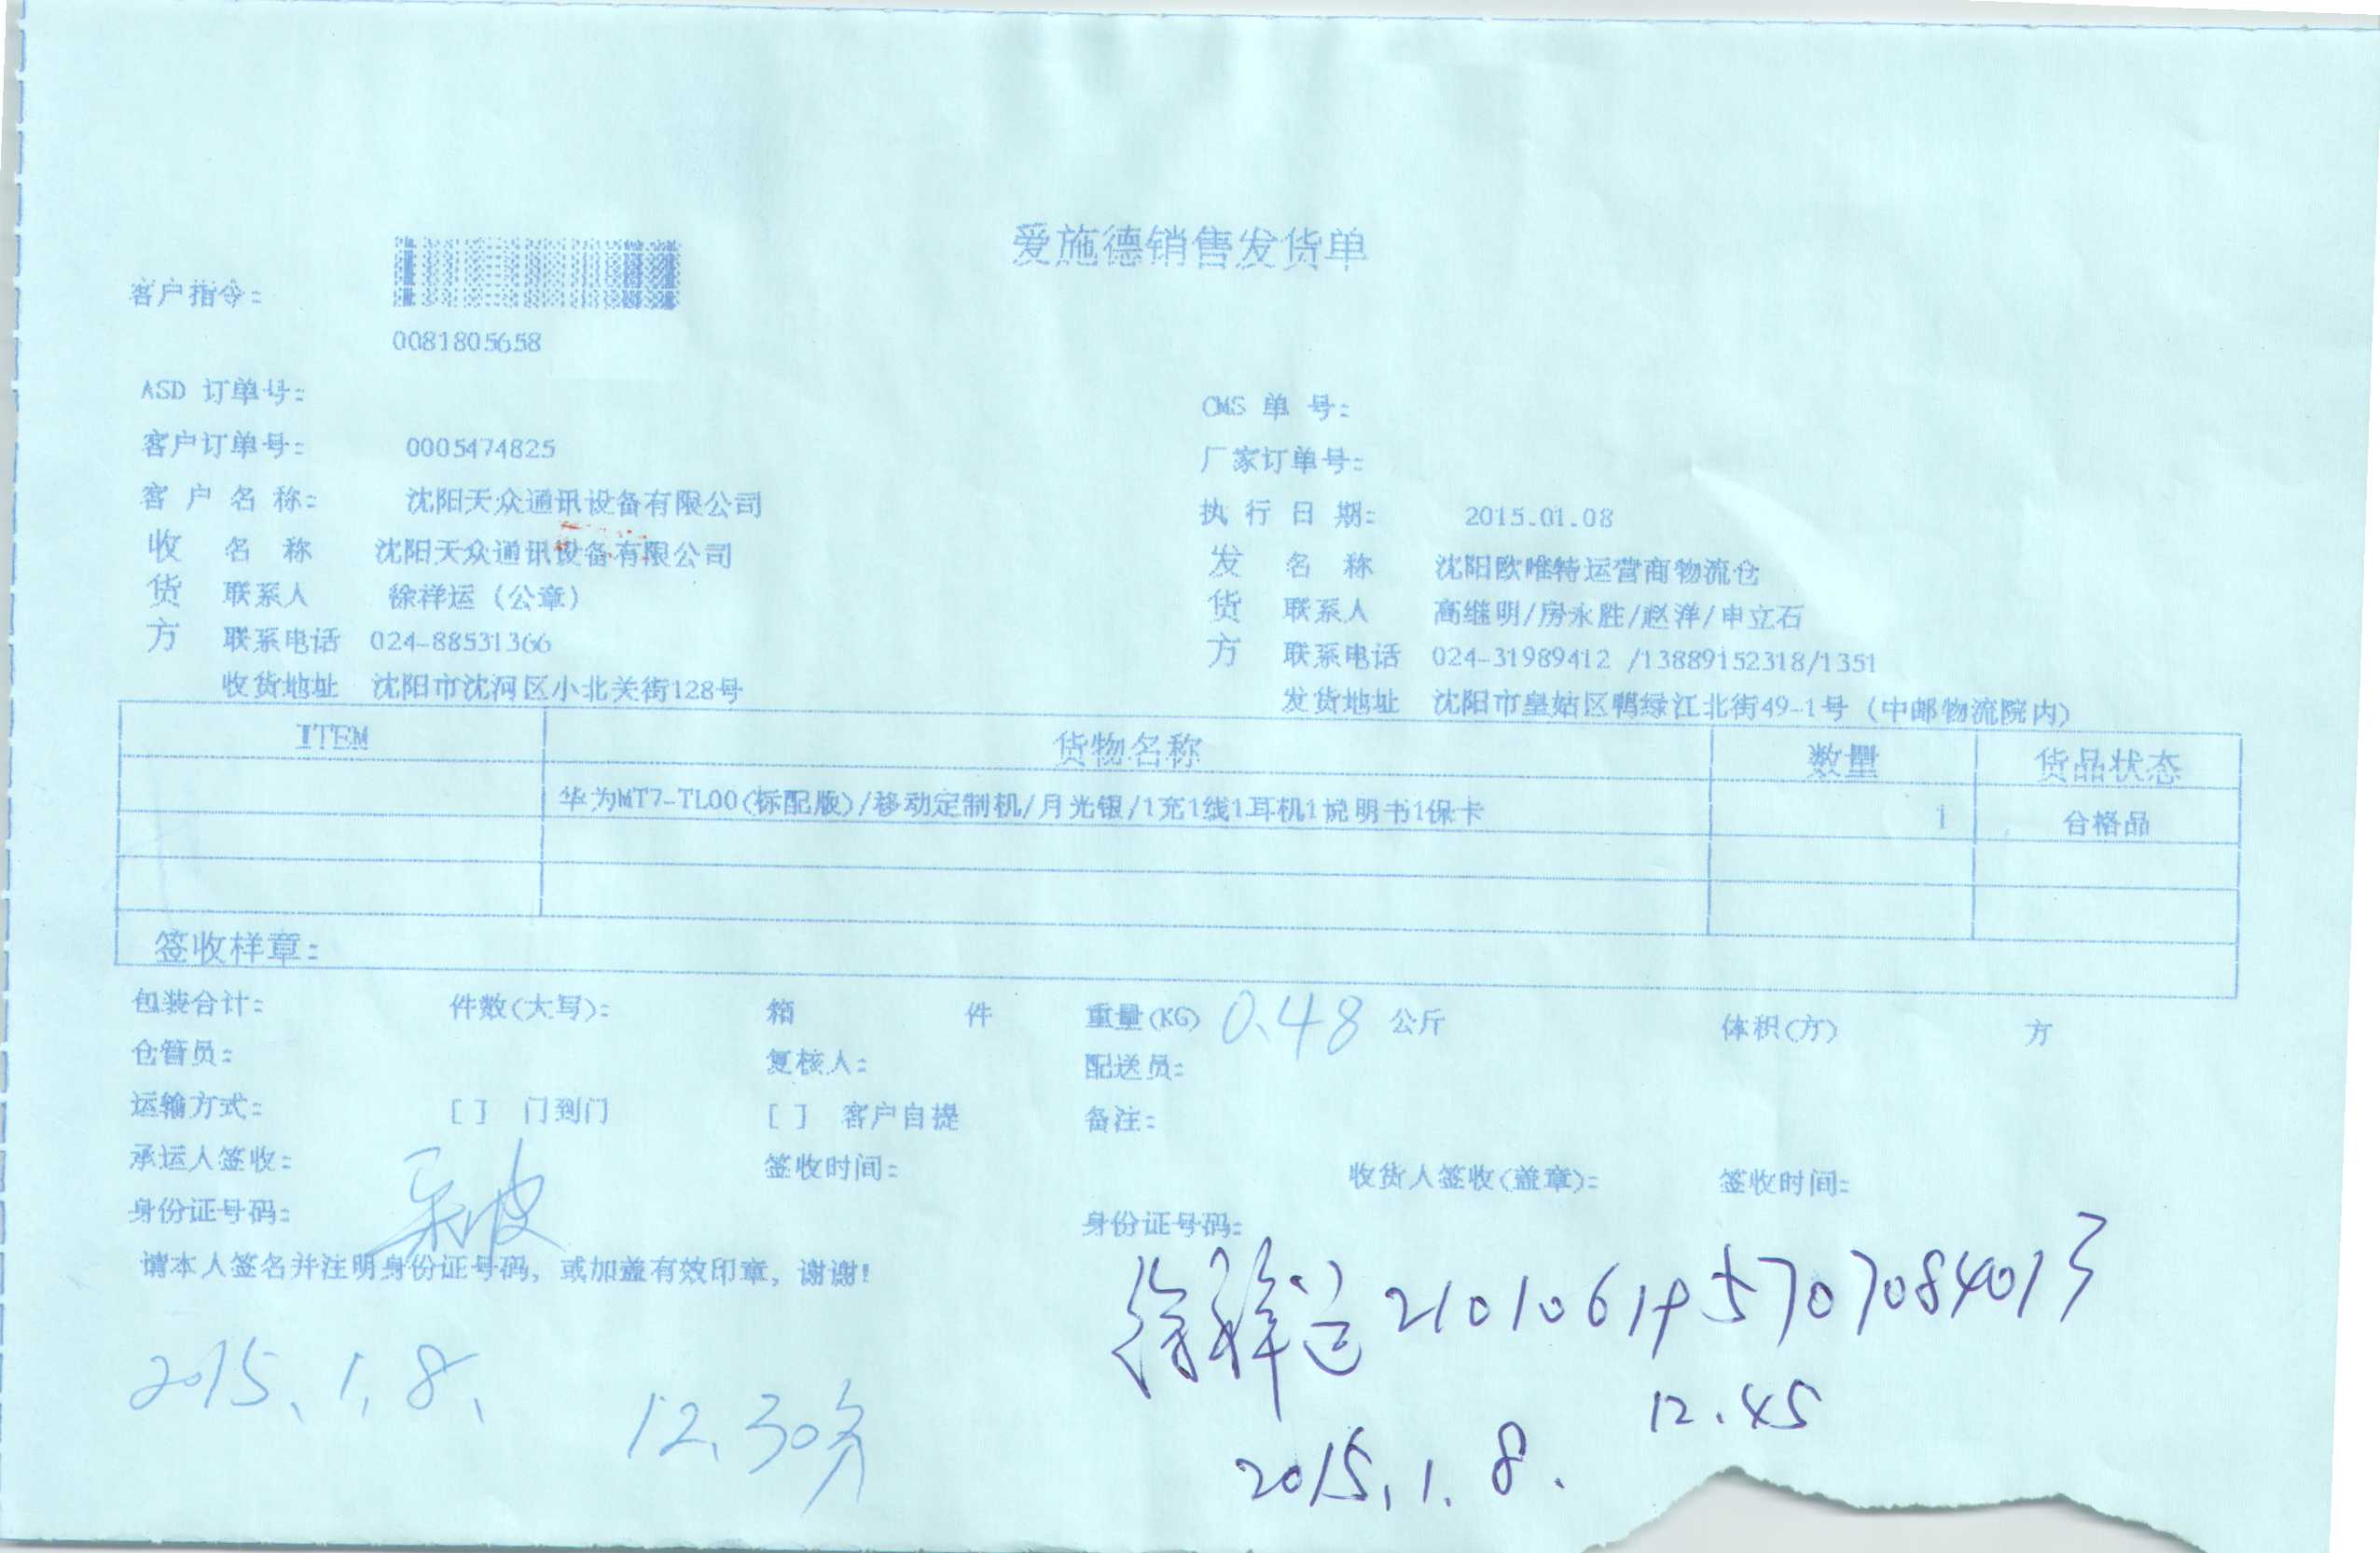 爱施德销售发货单
客户指令:
0081805658
ASD 订单号:
CMS 单 号:
客户订单号: 0005474825
厂家订单号:
客 户 名 称: 沈阳天众通讯设备有限公司
执 行 日 期: 2015.01.08
收货方
名 称 沈阳天众通讯设备有限公司
联系人 徐祥运(公章)
联系电话 024-88531366
收货地址 沈阳市沈河区小北关街128号
发货方
名 称 沈阳欧唯特运营商物流仓
联系人 高继明/房永胜/赵洋/申立石
联系电话 024-31989412 /13889152318/1351
发货地址 沈阳市皇姑区鸭绿江北街49-1号(中邮物流院内)
ITEM 货物名称 数量 货品状态
华为MT7-TL00(标配版)/移动定制机/月光银/1充1线1耳机1说明书1保卡 1 合格品
签收样章:
包装合计: 件数(大写): 箱 件 重量(KG) 0.48 公斤 体积(方) 方
仓管员: 复核人: 配送员:
运输方式: [ ] 门到门 [ ] 客户自提 备注:
承运人签收: 签收时间: 收货人签收(盖章): 签收时间:
身份证号码: 身份证号码:
请本人签名并注明身份证号码, 或加盖有效印章, 谢谢!
徐祥运 210106195707084013
2015.1.8. 12.30分
12.45
2015.1.8.